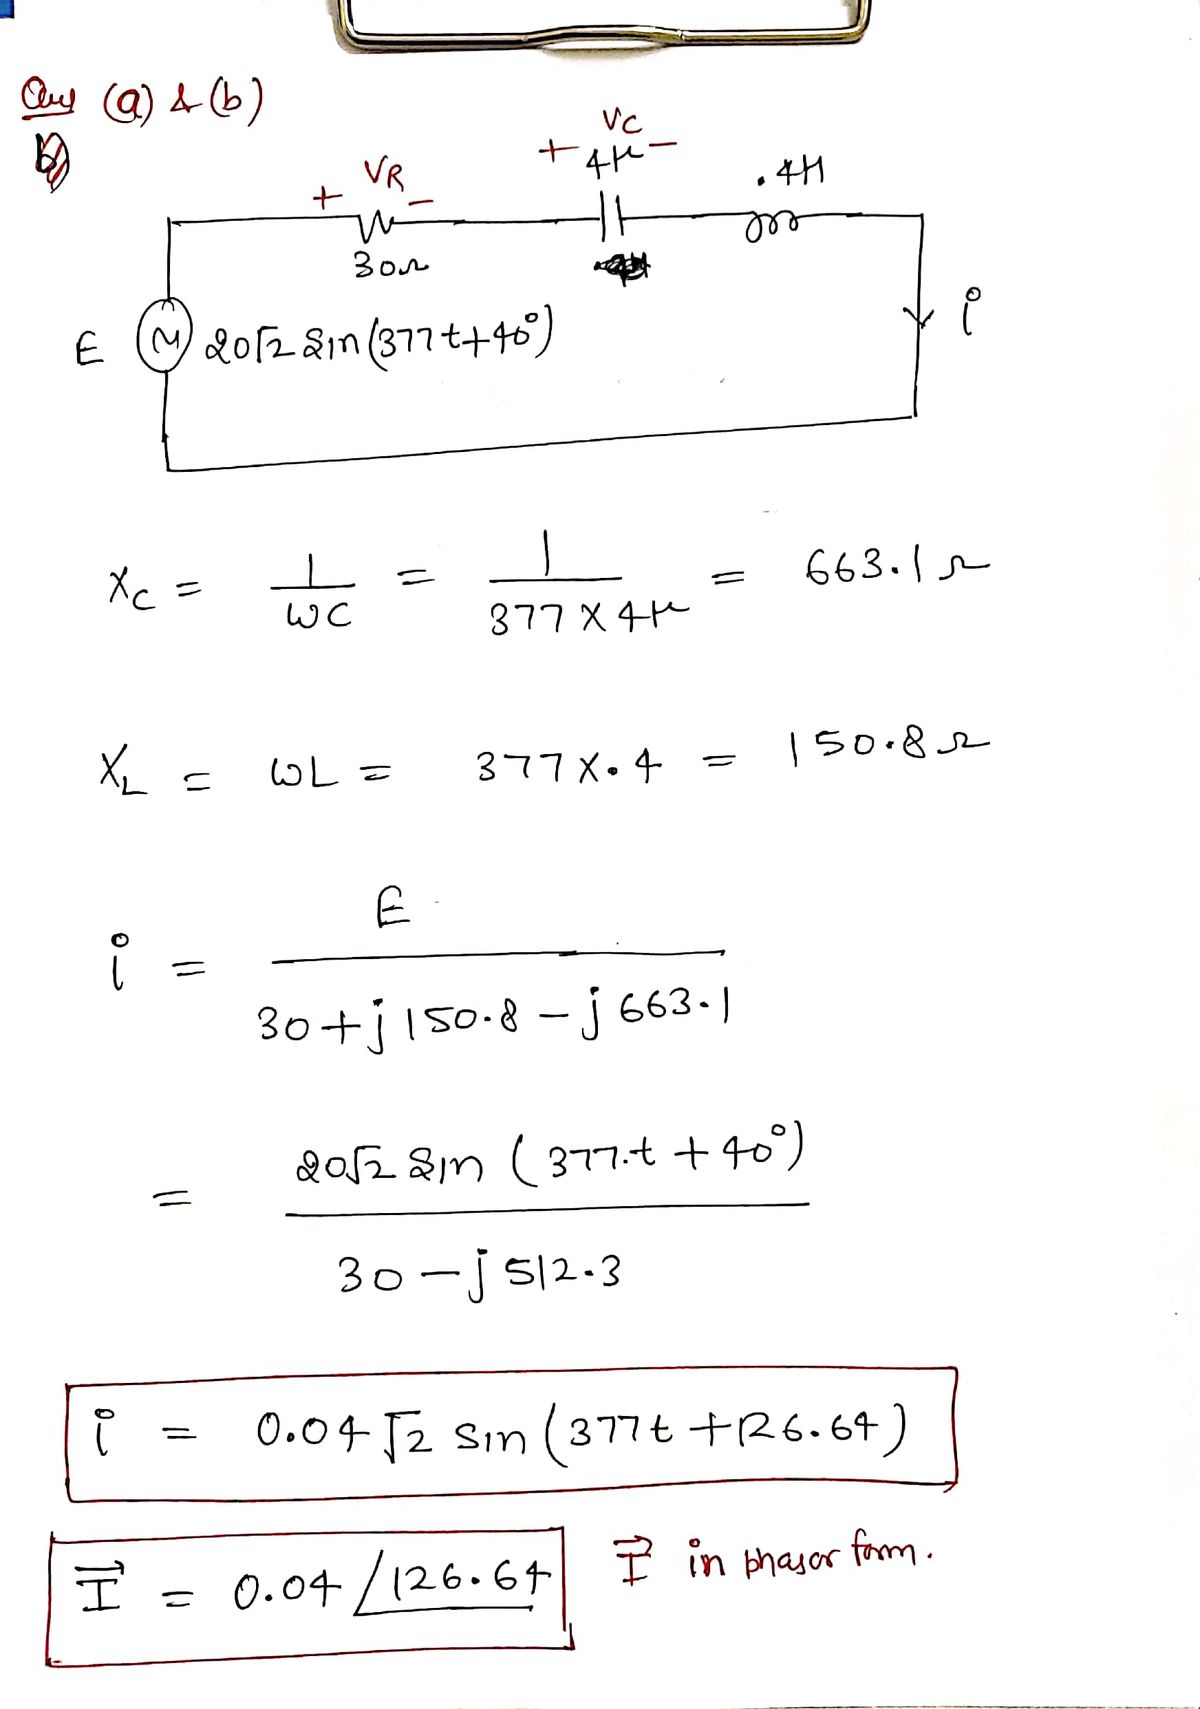 Ans (a) & (b)
VC
+ 4μ −
VR
+ −
.4H
30Ω
i
E 20√2 Sin(377t+40°)
XC = 1/ωC = 1/(377 X 4μ) = 663.1Ω
XL = ωL = 377X.4 = 150.8Ω
i = E/(30+j150.8 − j663.1)
= 20√2 Sin (377.t + 40°)/(30 − j512.3)
i = 0.04 √2 Sin (377t +126.64)
I⃗ = 0.04 ∠126.64 I⃗ in phasor form.